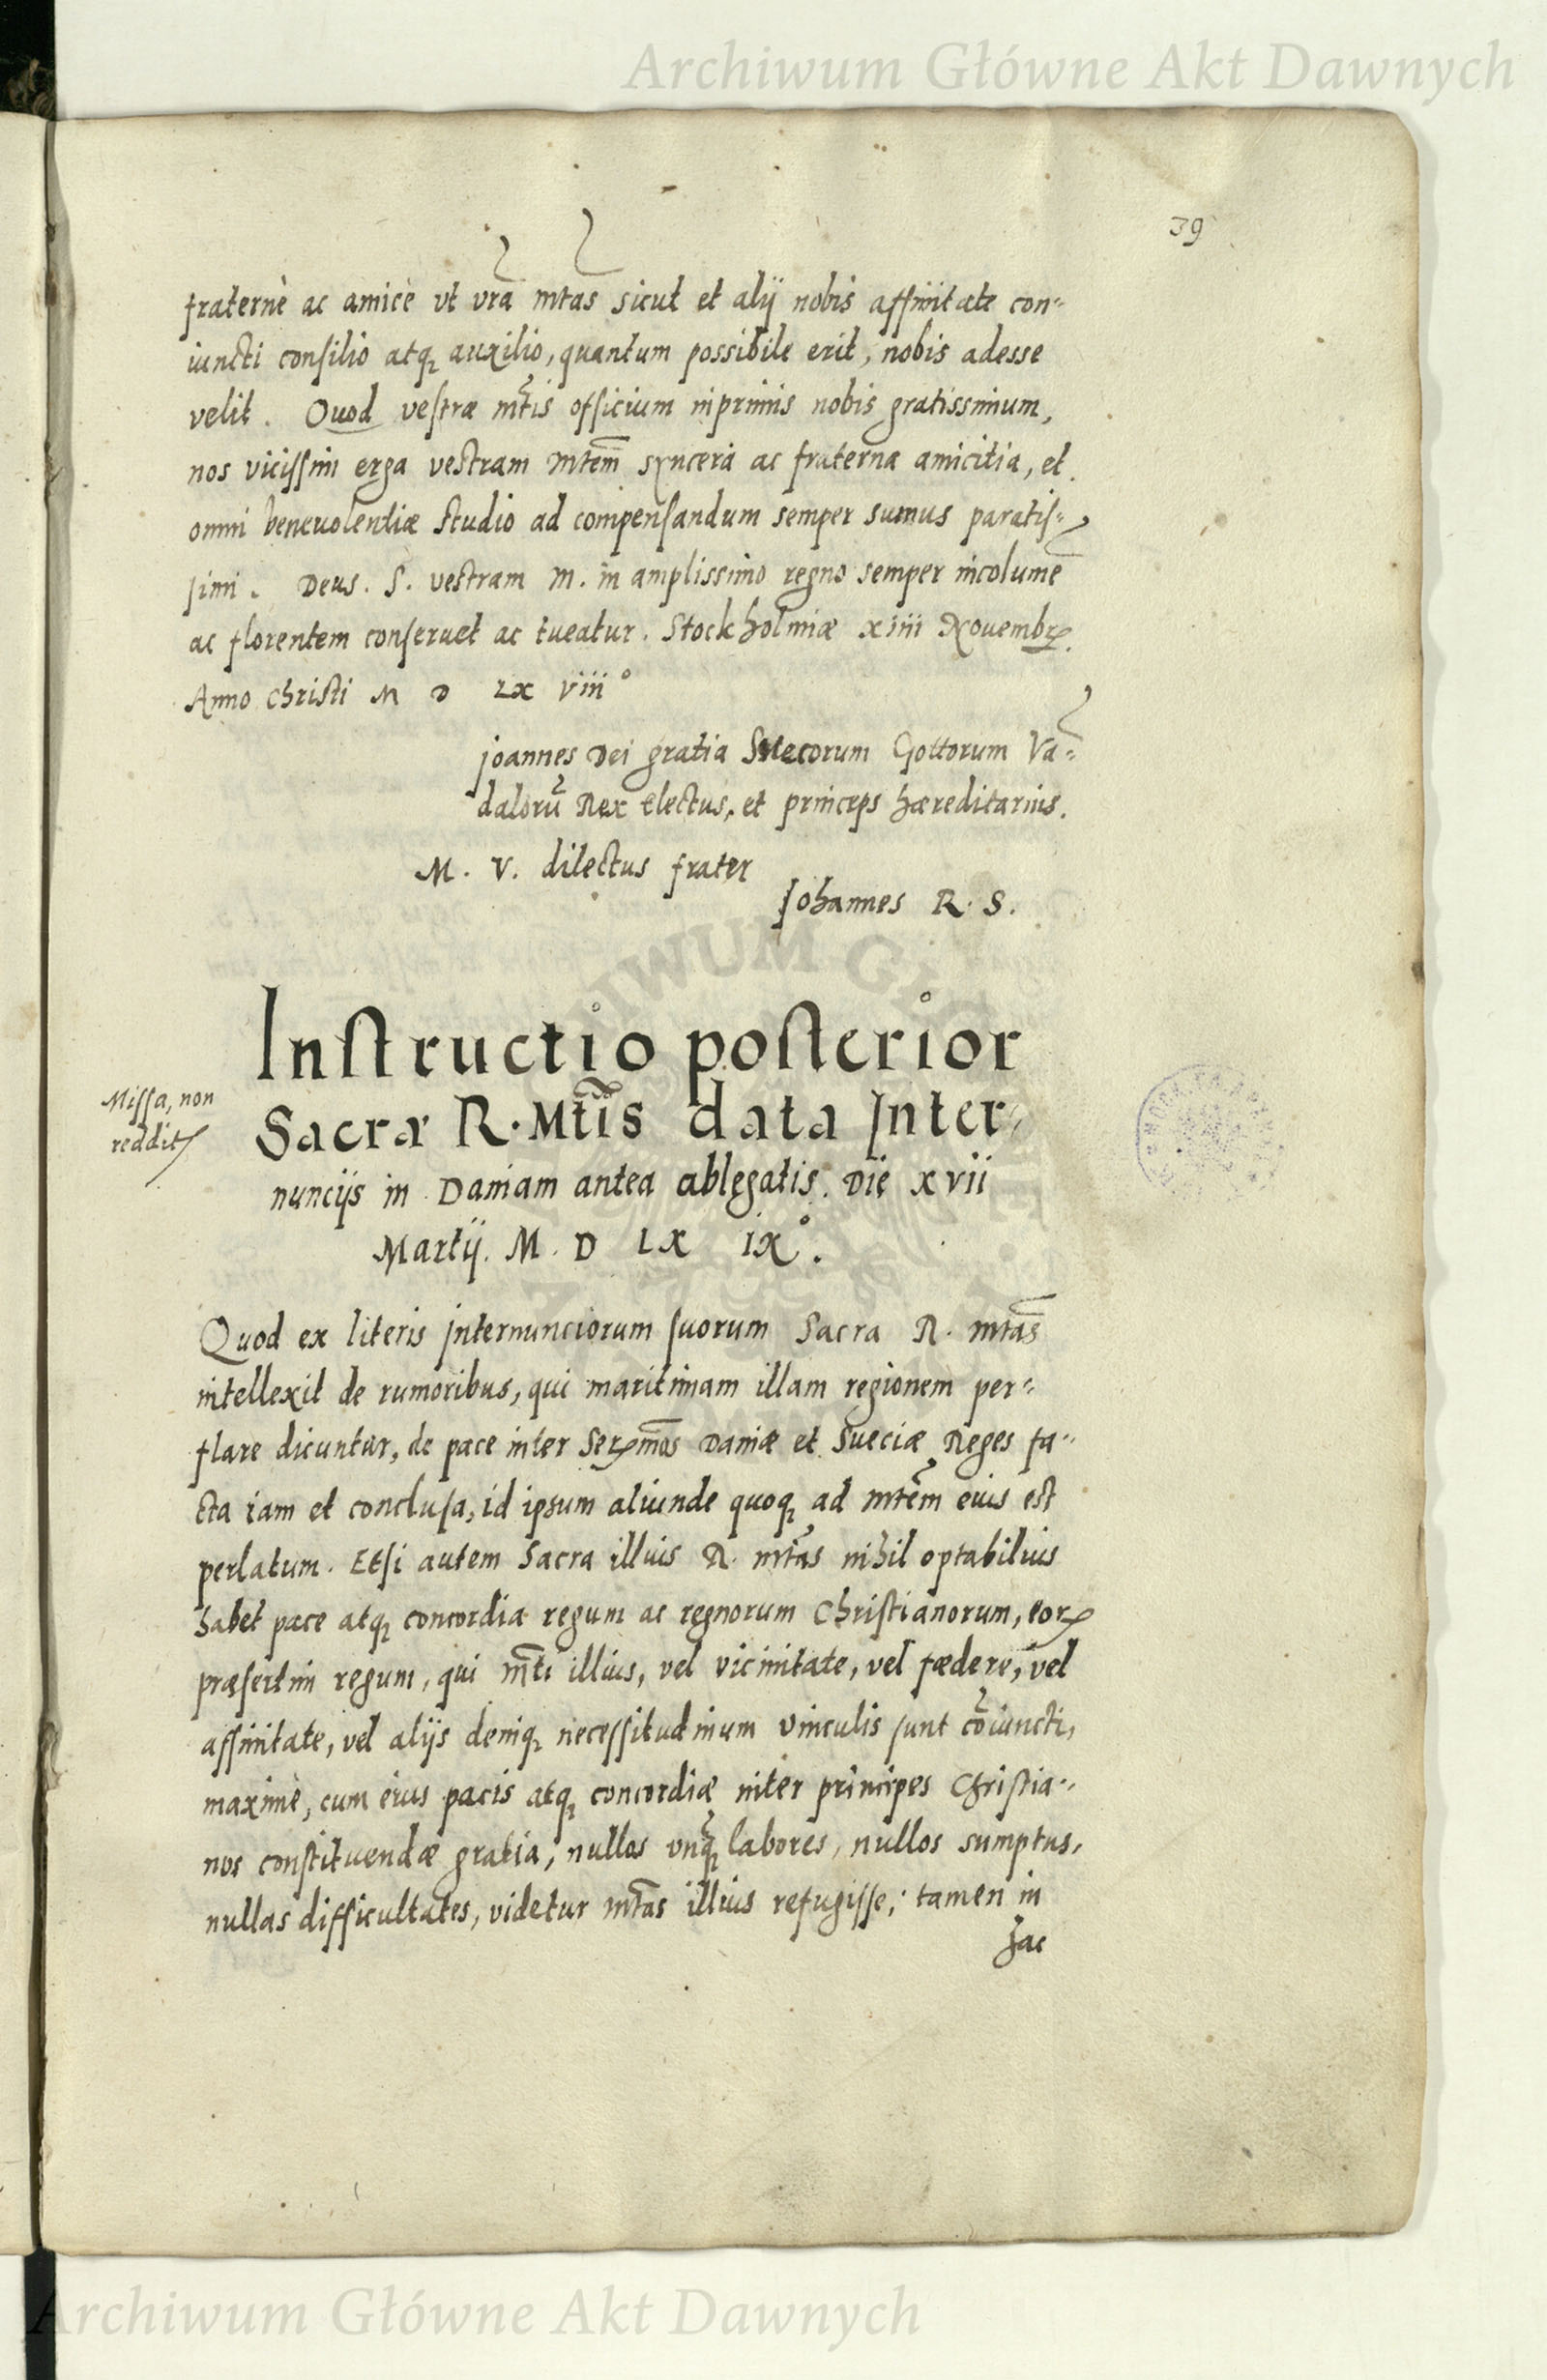 Archiwum Główne Akt Dawnych
39
fraternè ac amicè vt vrã mtãs sicut et alÿ nobis affinitate con⸗
iuncti consilio atqꝫ auxilio, quantum possibile erit, nobis adesse
velit. Quod vestræ mt̃is officium inprimis nobis gratissimum,
nos vicissim erga vestram mtem̃ syncera ac fraterna amicitia, et
omni beneuolentiæ studio ad compensandum semper sumus paratis⸗
simi. Deus. S. vestram M. in amplissimo regno semper incolumẽ
ac florentem conseruet ac tueatur. Stockholmiæ xiiii Nouembrꝭ.
Anno Christi M D LX viii°
Joannes Dei gratia Suecorum Gottorum Vã⸗
dalorũ Rex Electus, et princeps hæreditarius.
M. V. dilectus frater
Johannes R. S.
Instructio posterior
Missa, non
reddit
Sacræ R. Mt̃is data Inter⸗
nuncÿs in Daniam antea ablegatis. Die xvii
Martÿ. M. D LX ix°.
Quod ex literis internunciorum suorum Sacra R. mtãs
intellexit de rumoribus, qui maritimam illam regionem per⸗
flare dicuntur, de pace inter Serꝭmos̃ Daniæ et Sueciæ Reges fa⸗
cta iam et conclusa, id ipsum aliunde quoqꝫ ad mtẽm eius est
perlatum. Etsi autem Sacra illius R. mtãs nihil optabilius
habet pace atqꝫ concordia regum ac regnorum Christianorum, eorꝭ
præsertim regum, qui mt̃i illius, vel vicinitate, vel fœdere, vel
affinitate, vel alÿs deniqꝫ necessitudinum vinculis sunt cõiuncti,
maximè, cum eius pacis atqꝫ concordiæ inter principes Christia⸗
nos constituendæ gratia, nullos vnqꝫ̃ labores, nullos sumptus,
nullas difficultates, videtur mtãs illius refugisse; tamen in
hac
Archiwum Główne Akt Dawnych